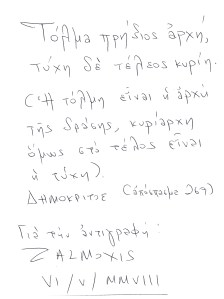 Τόλμα πρήξιος ἀρχή,
τύχη δὲ τέλεος κυρίη.
(Ἡ τόλμη εἶναι ἡ ἀρχὴ
τῆς δράσης, κυρίαρχη
ὅμως στὸ τέλος εἶναι
ἡ τύχη).
ΔΗΜΟΚΡΙΤΟΣ (ἀπόσπασμα 269)
Γιὰ τὴν ἀντιγραφή:
ZALMOXIS
VI/V/MMVIII